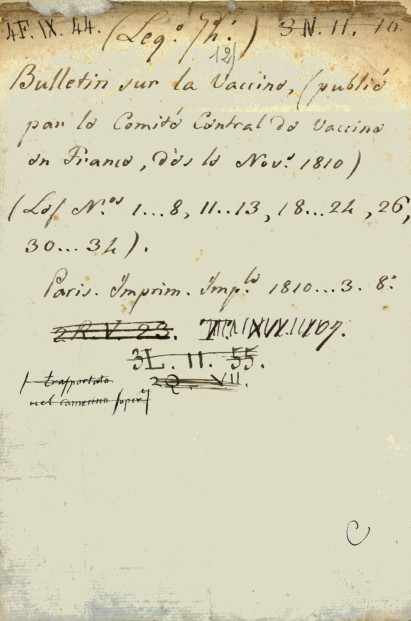 4F. IX. 44. (Leg.º 7h.) 3 N. 11. 10
12)
Bulletin sur la Vaccine, (publié
par le Comité Central de Vaccine
en France, dès le Nov.e 1810)
(Les N.os 1...8, 11...13, 18...24, 26,
30...34).
Paris. Imprim. Imp.le 1810...3. 8.º
2 R. V. 23.
3L. II. 55.
2 Q. VII.
trasportato
nel camerino super.e
C